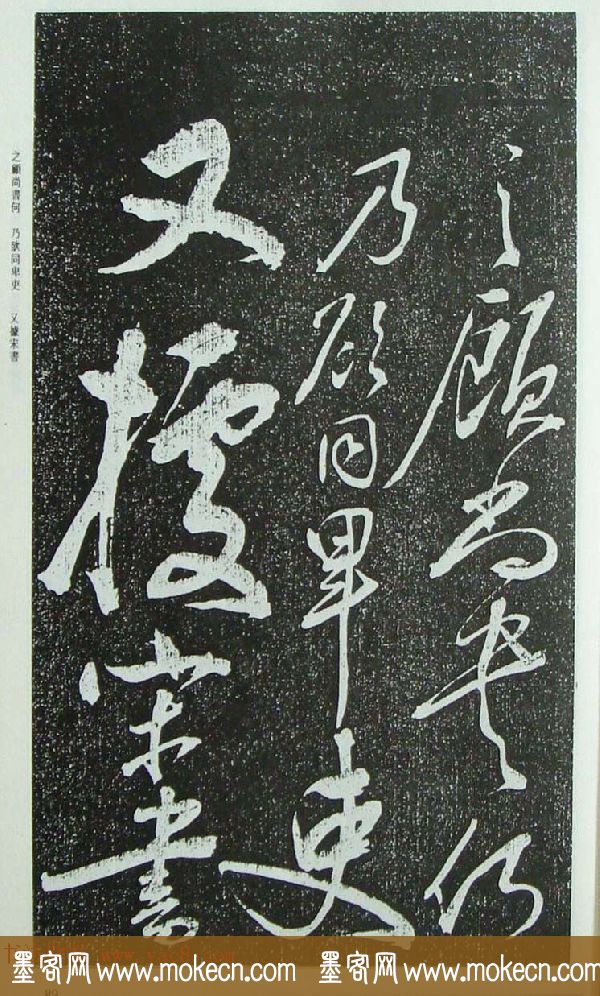 之顧尚書何
乃欲同卑吏
又據宋書
之顧尚書何　乃欲同卑吏　又據宋書
墨客网 www.mokecn.com 墨客网 www.mokecn.com